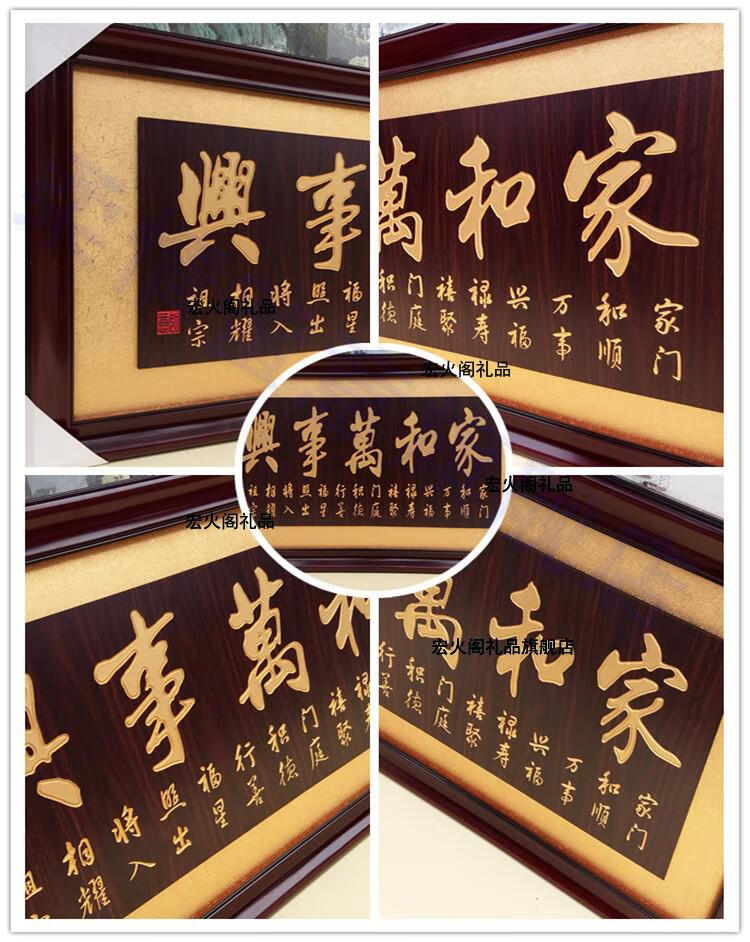 事興
福星照出将入相耀祖宗
宏火阁礼品
家和萬
家门和顺万事兴福禄寿禧聚门庭积德
宏火阁礼品
家和萬事興
家门和顺万事兴福禄寿禧聚门庭积德行善福星照出将入相耀祖宗
宏火阁礼品
宏火阁礼品
和萬事興
禄寿禧聚门庭积德行善福星照出将入相耀祖
家和萬
家门和顺万事兴福禄寿禧聚门庭积德行善
宏火阁礼品旗舰店